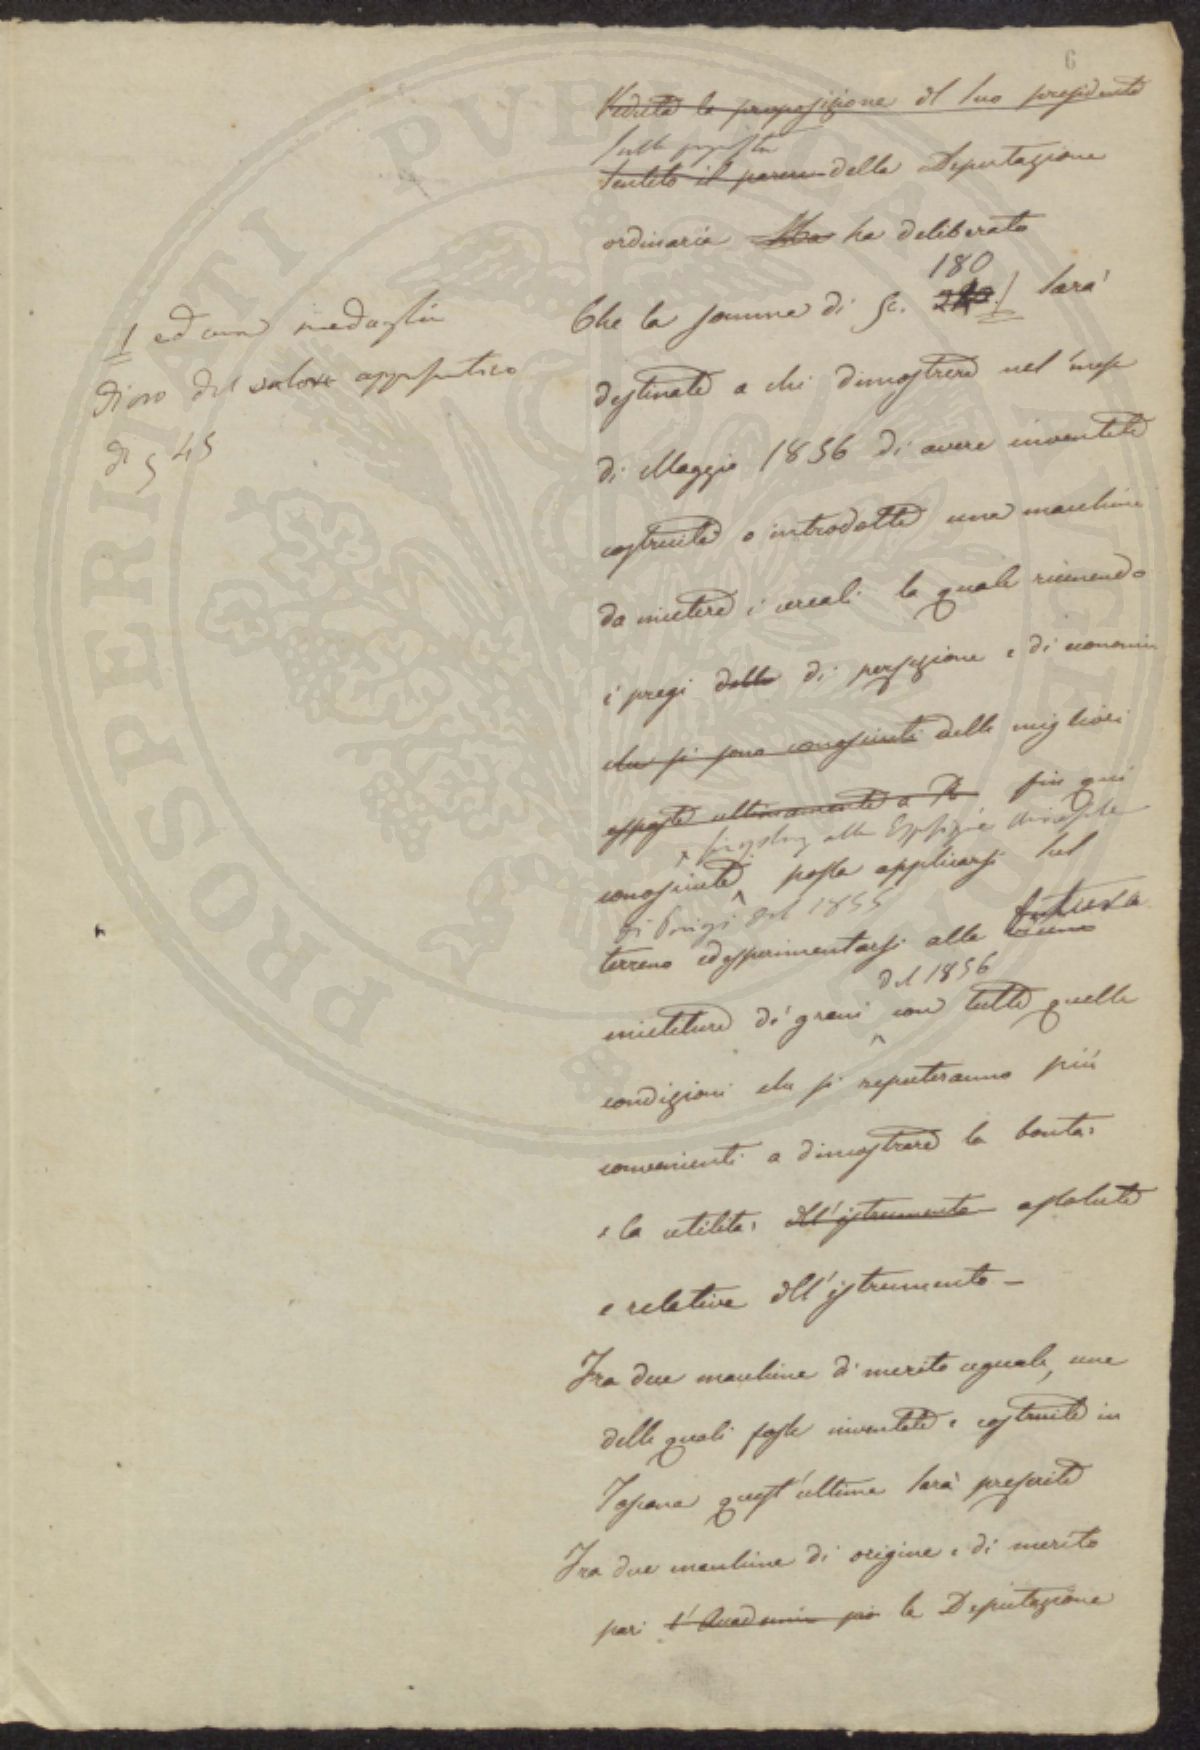 6
Veduta la proposizione del suo presidente
sulla proposta
Sentito il parere della Deputazione
ordinaria ha deliberato
180
Che la somma di Sc. 240 / sarà
destinata a chi dimostrerà nel mese
di Maggio 1856 di avere inventata
costruita o introdotta una macchina
da mietere i cereali la quale riunendo
i pregi delle di perfezione e di economia
che si sono conosciuti delle migliori
esposte ultimamente a fin qui
alla Esposizione universale
conosciute possa applicarsi sul
di Parigi del 1855
terreno ed esperimentarsi alla futura
del 1856
mietitura di grani con tutte quelle
condizioni che si reputeranno più
convenienti a dimostrare la bontà
e la utilità dell'istrumento assoluta
e relativa dell'istrumento —
Fra due macchine di merito uguale, una
delle quali fosse inventata e costruita in
Toscana quest'ultima sarà preferita
Fra due macchine di origine e di merito
pari l'Accademia la Deputazione
1 ed una medaglia
d'oro del valore approssimativo
di 45
PROSPERITATI PVBLICAE AVGENDAE